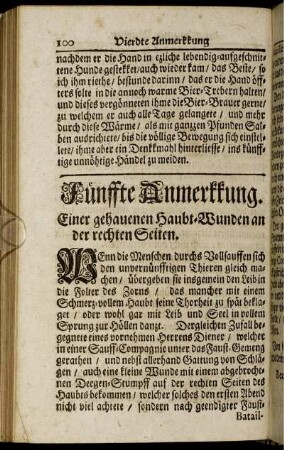 100 Vierdte Anmerkkung
nachdem er die Hand in etzliche lebendig-aufgeschnit-
tene Hunde gestekket/auch wieder kam/ das Beste/ so
ich ihm riethe/ bestunde darinn / das er die Hand öff-
ters solte in die annoch warme Bier-Trebern halten/
und dieses vergönneten ihme die Bier-Brauer gerne/
zu welchem er auch alle Tage gelangete / und mehr
durch diese Wärme / als mit gantzen Pfunden Sal-
ben ausrichtete/ bis die völlige Bewegung sich einstel-
lete/ ihme aber ein Denkmahl hinterliesse/ ins künff-
tige unnöhtige Händel zu meiden.
Fünffte Anmerkkung.
Einer gehauenen Haubt-Wunden an
der rechten Seiten.
WEnn die Menschen durchs Vollsauffen sich
den unvernünfftigen Thieren gleich ma-
chen / übergeben sie insgemein den Leib in
die Folter des Zorns / das mancher mit einem
Schmertz-vollem Haubt seine Thorheit zu spät bekla-
get / oder wohl gar mit Leib und Seel in vollem
Sprung zur Höllen dantzt. Dergleichen Zufall be-
gegnete eines vornehmen Herrens Diener / welcher
in einer Sauff-Compagnie unter das Faust-Gemeng
gerathen / und nebst allerhand Gattung von Schlä-
gen / auch eine kleine Wunde mit einem abgebroche-
nen Deegen-Stumpff auf der rechten Seiten des
Haubts bekommen / welcher solches den ersten Abend
nicht viel achtete / sondern nach geendigter Faust-
Batail-